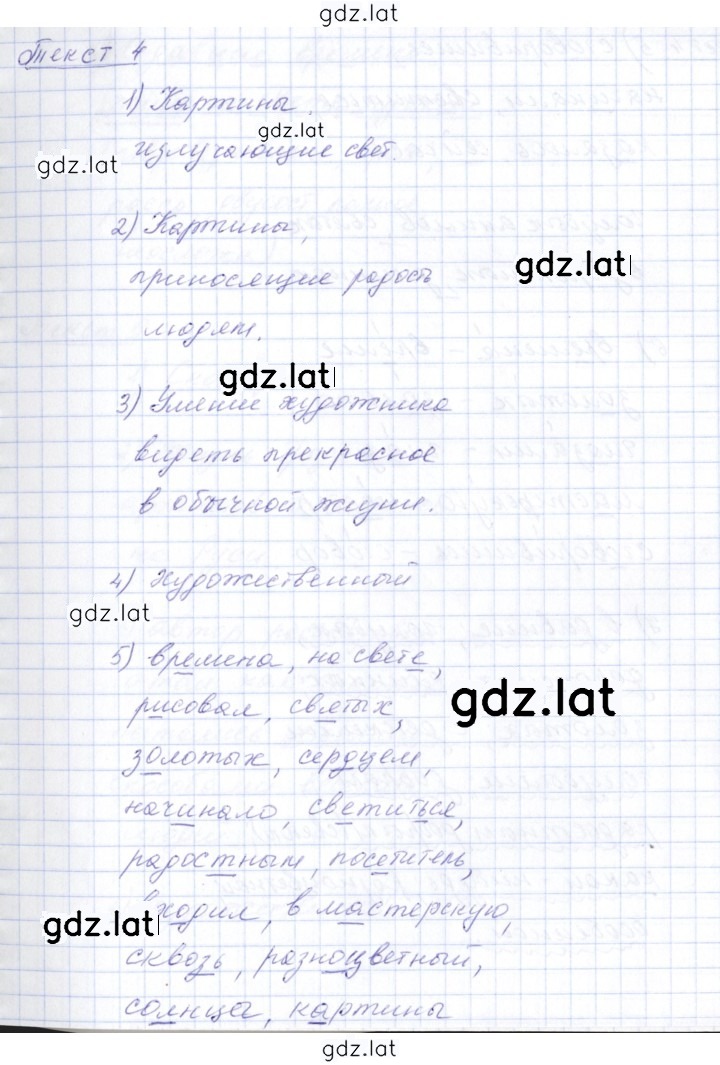 gdz.lat
Текст 4
1) Картины,
gdz.lat
излучающие свет.
gdz.lat
2) Картины,
gdz.lat
приносящие радость
людям.
gdz.lat
3) Умение художника
видеть прекрасное
в обычной жизни.
4) Художественный
gdz.lat
5) времена, на свете,
рисовал, святых,
gdz.lat
золотых, сердцем,
начинало, светиться,
радостным, посетитель,
входил, в мастерскую,
gdz.lat
сквозь, разноцветный,
солнца, картины
gdz.lat